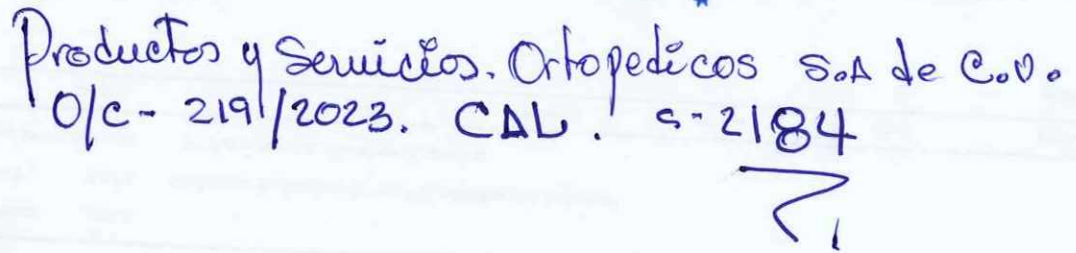 Productos y Servicios. Ortopedicos S.A de C.V.
O/C- 219/2023. CAL. s-2184